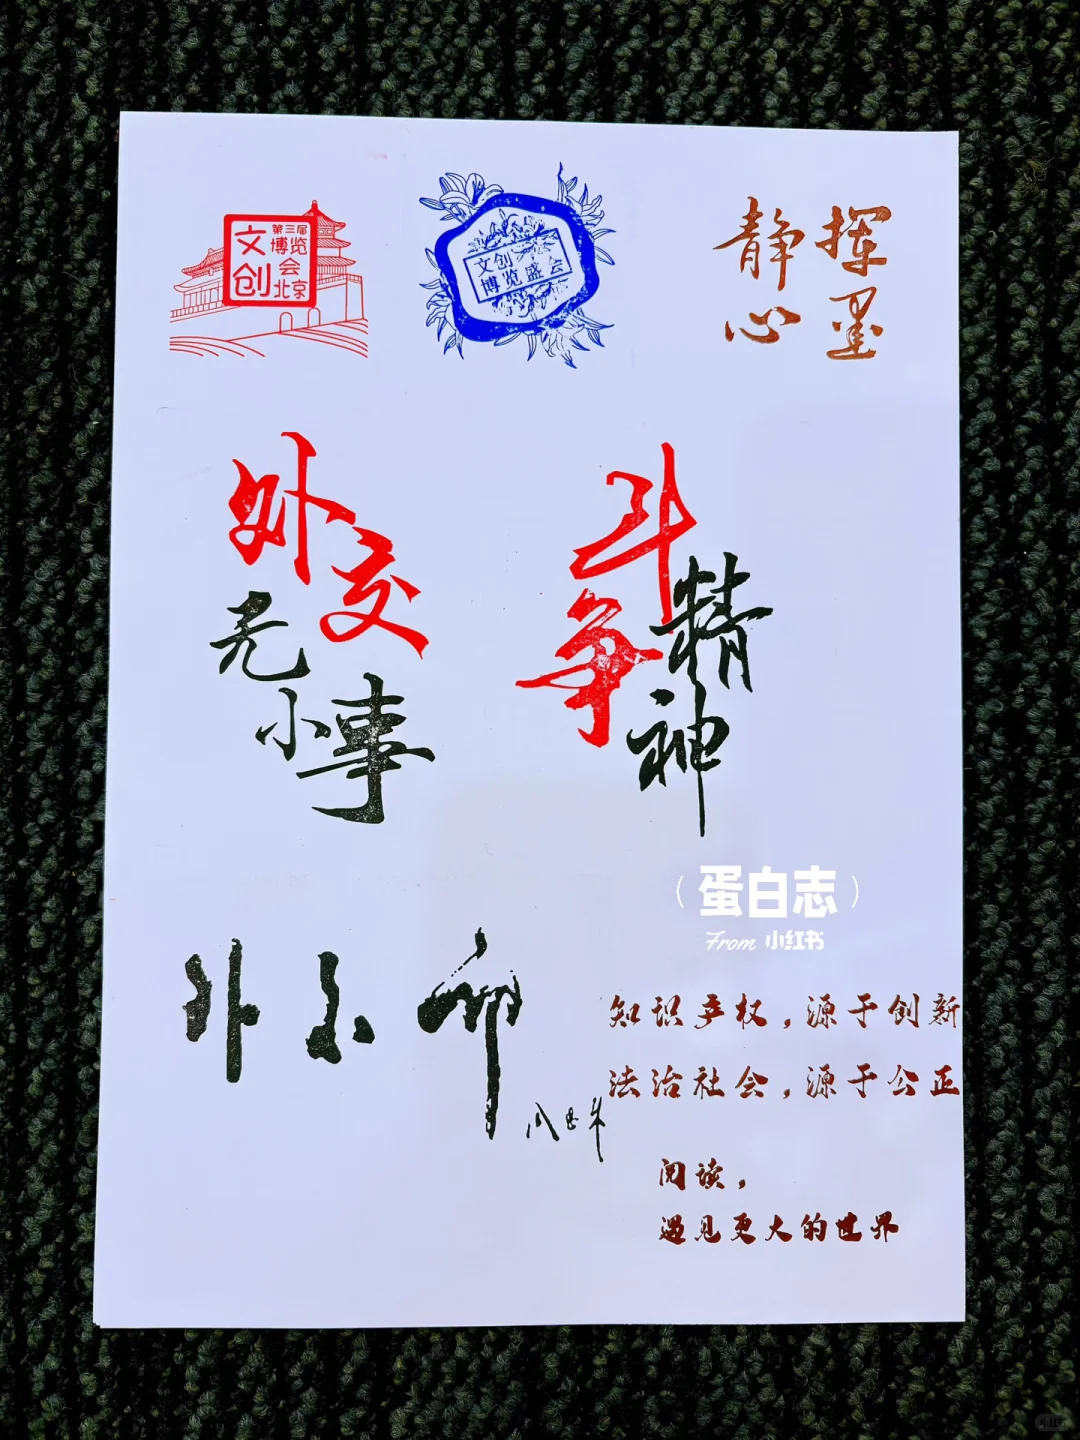 文创
第三届
博览
会
北京
文创
博览盛会
挥墨
静心
外交
无
小事
斗争
精神
蛋白志
From 小红书
外交部
知识产权，源于创新
法治社会，源于公正
阅读，
遇见更大的世界